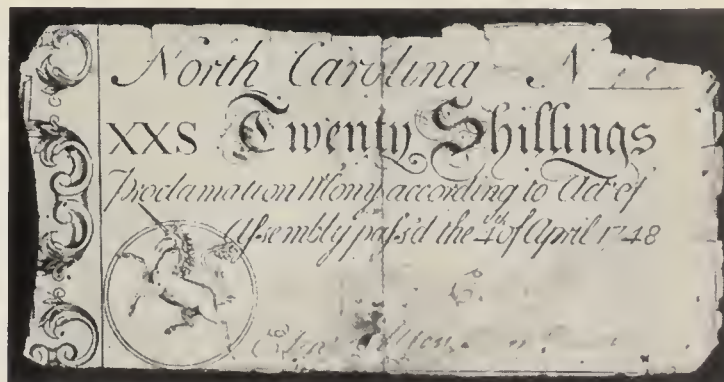 North Carolina N
XXS Twenty Shillings
Proclamation Mony according to Act of
Assembly pass'd the 4th of April 1748